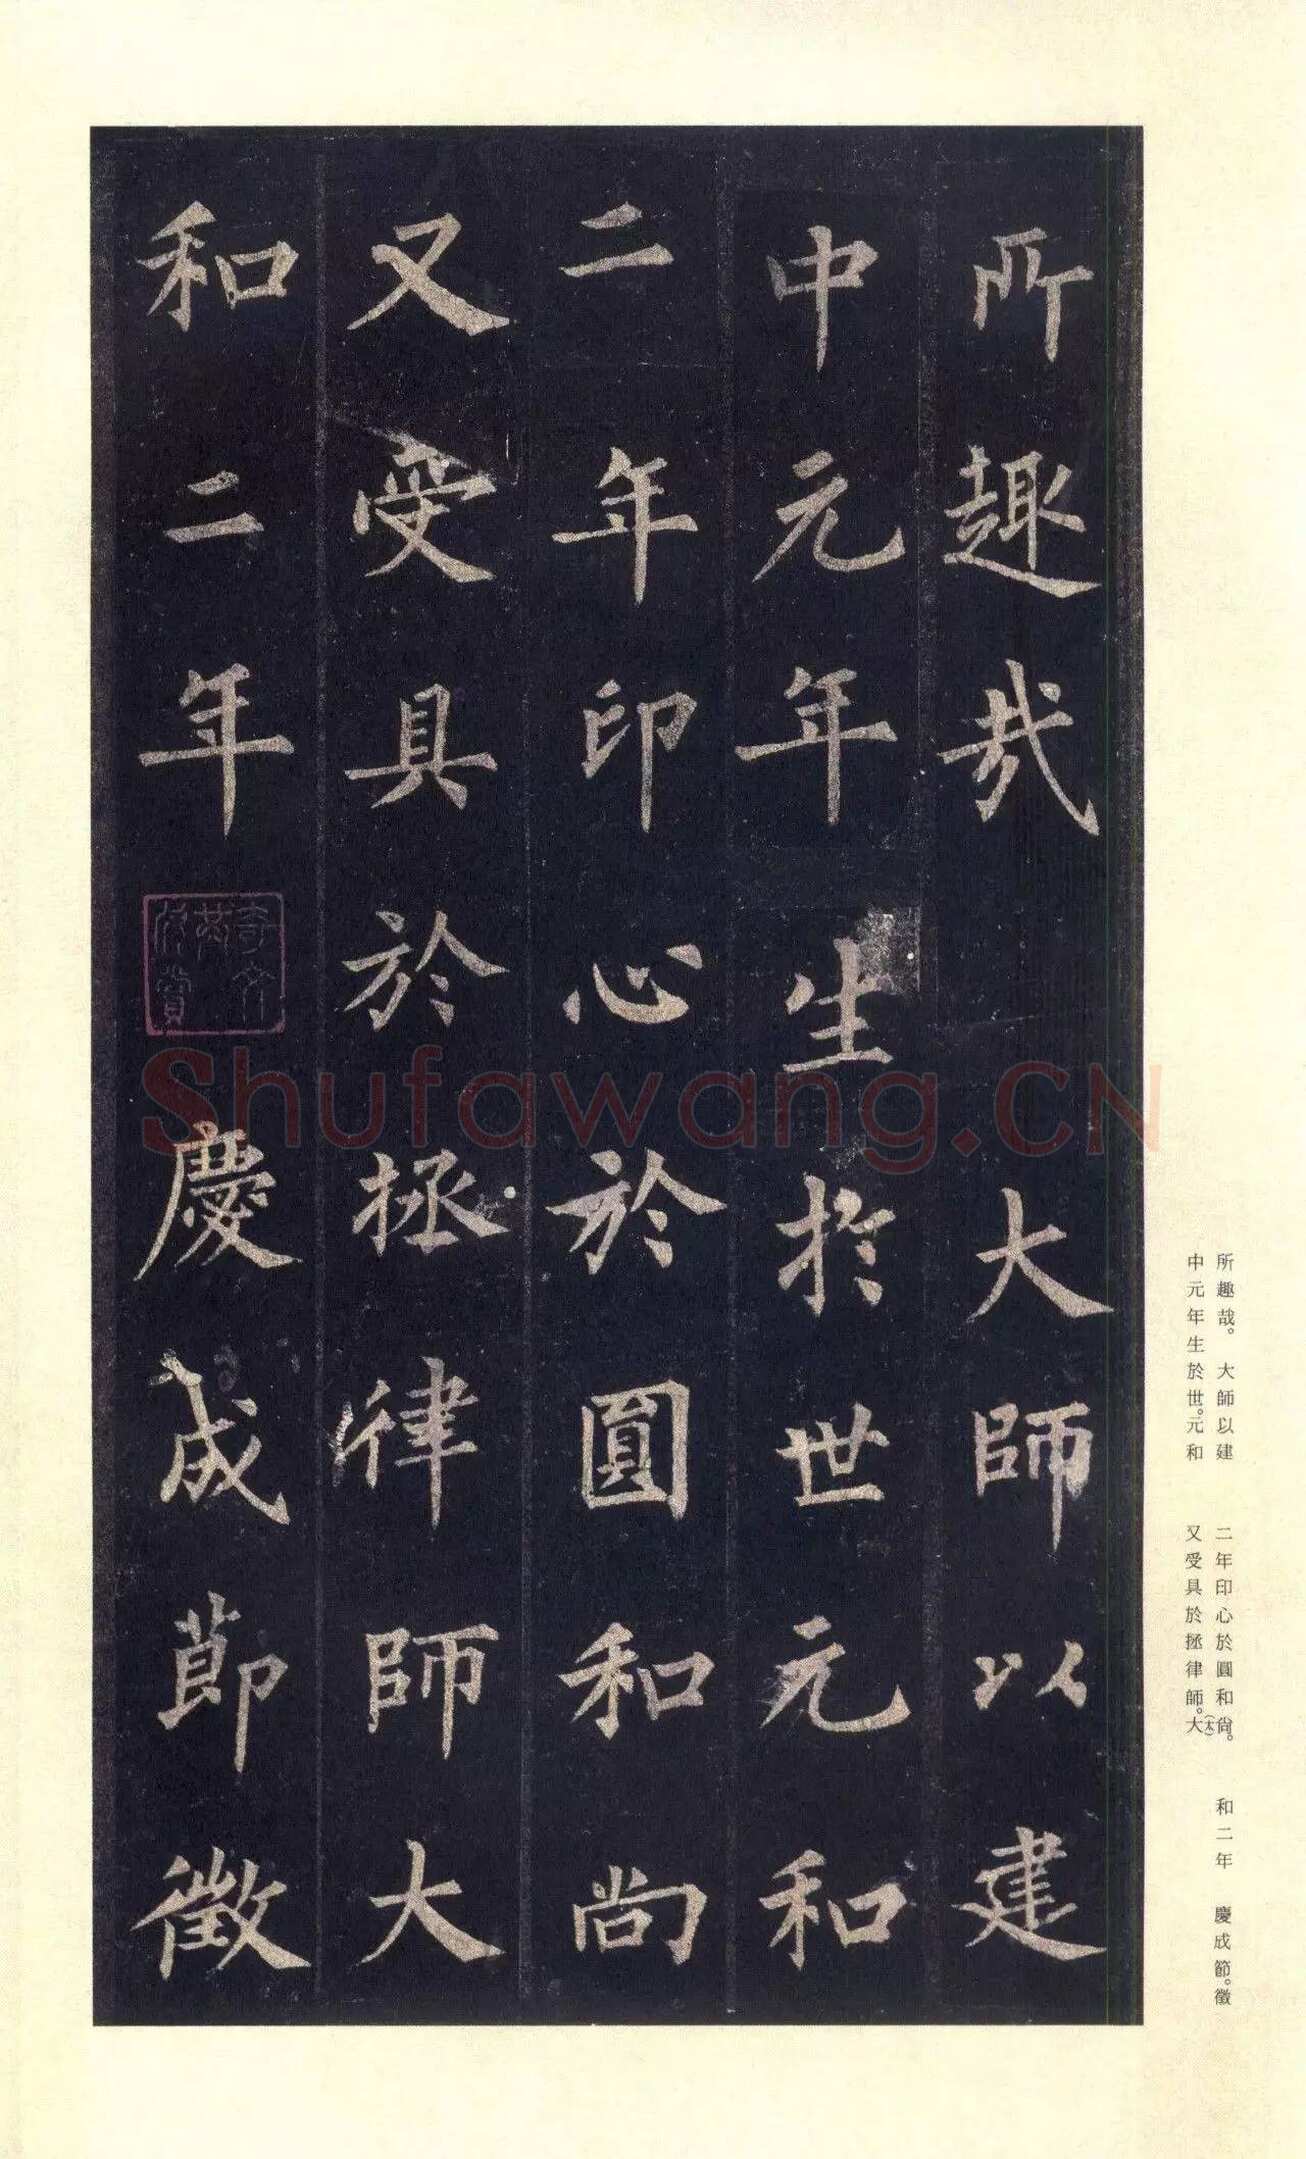 所趣哉　大師以建
中元年生於世元和
二年印心於圓和尚
又受具於拯律師大
和二年　慶成節徵
所趣哉。　大師以建
中元年生於世。元和
二年印心於圓和尚。
又受具於拯律師。大(太)
和二年　慶成節。徵
Shufawang.CN